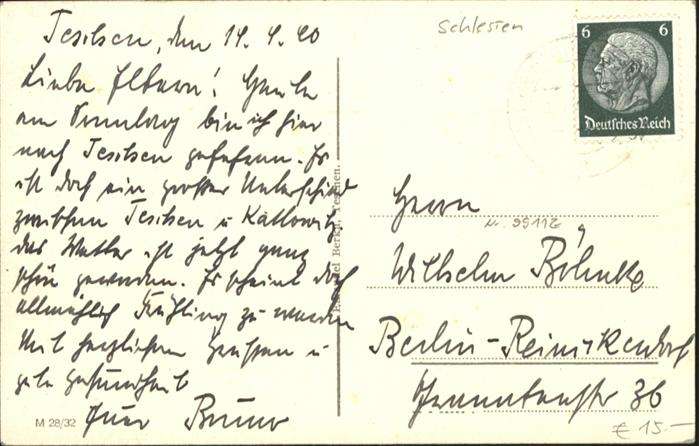 Teschen, den 14.4.40
Liebe Eltern! Heute
am Sonntag bin ich hier
nach Teschen gefahren. Es
ist doch ein großer Unterschied
zwischen Teschen u Kattowitz
das Wetter ist jetzt ganz
schön geworden. Es scheint doch
allmählich Frühling zu werden
Mit herzlichen Grüssen u
gute Gesundheit
Euer Bruno
M 28/32
Teschen.
Schlesien
6 6
Deutsches Reich
Herrn
99112
Wilhelm Böhnke
Berlin-Reinickendorf
36
€ 15.-